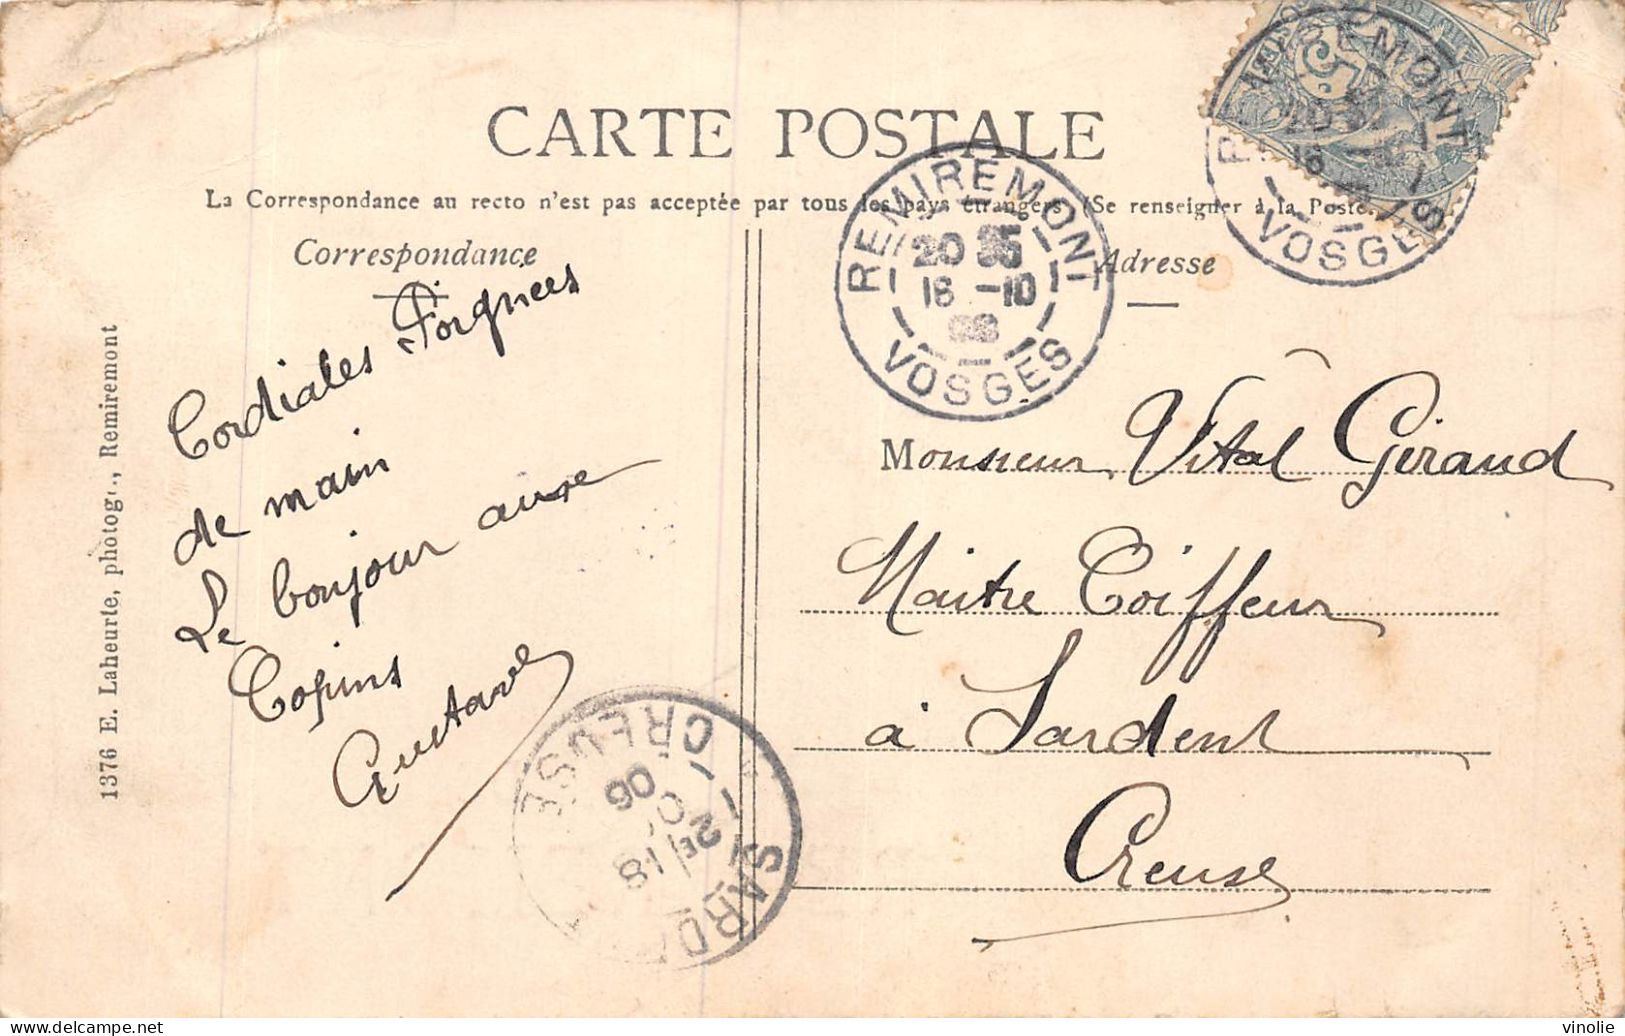 CARTE POSTALE
La Correspondance au recto n'est pas acceptée par tous les pays étrangers (Se renseigner à la Poste.)
Correspondance
Adresse
REMIREMONT
20 35
16 -10
VOSGES
REMIREMONT
20
16
VOSGES
Cordiales Poignées
de main
Le bonjour aux
Copins
Gustave
Monsieur Vital Giraud
Maitre Coiffeur
à Sardent
Creuse
SARD
2E/18
06
CREUSE
1376 E. Laheurte, photog., Remiremont
delcampe.net
vinolie